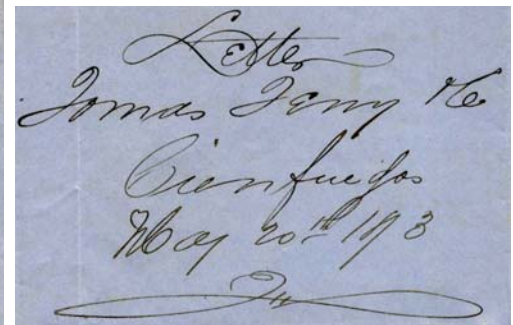 Letter
Tomas Terry
Cienfuegos
May 20th